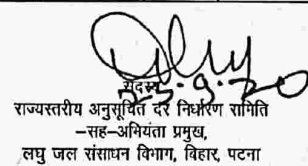 सदस्य
25.9.20
राज्यस्तरीय अनुसूचित दर निर्धारण समिति
–सह–अभियंता प्रमुख,
लघु जल संसाधन विभाग, बिहार, पटना